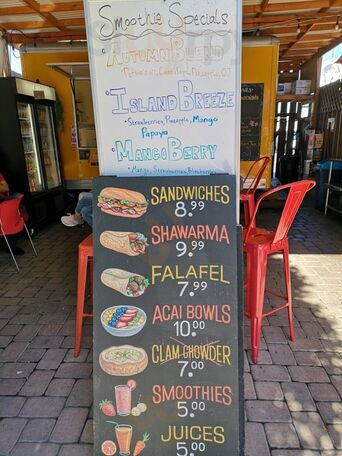 Smoothie Specials
• AUTUMN BLEND
• ISLAND BREEZE
• Strawberries, Pineapple, Mango
Papaya
• MANGO BERRY
• Mango, Strawberries, Blueberries
SANDWICHES
8.99
SHAWARMA
9.99
FALAFEL
7.99
ACAI BOWLS
10.00
CLAM CHOWDER
7.00
SMOOTHIES
5.00
JUICES
5.00